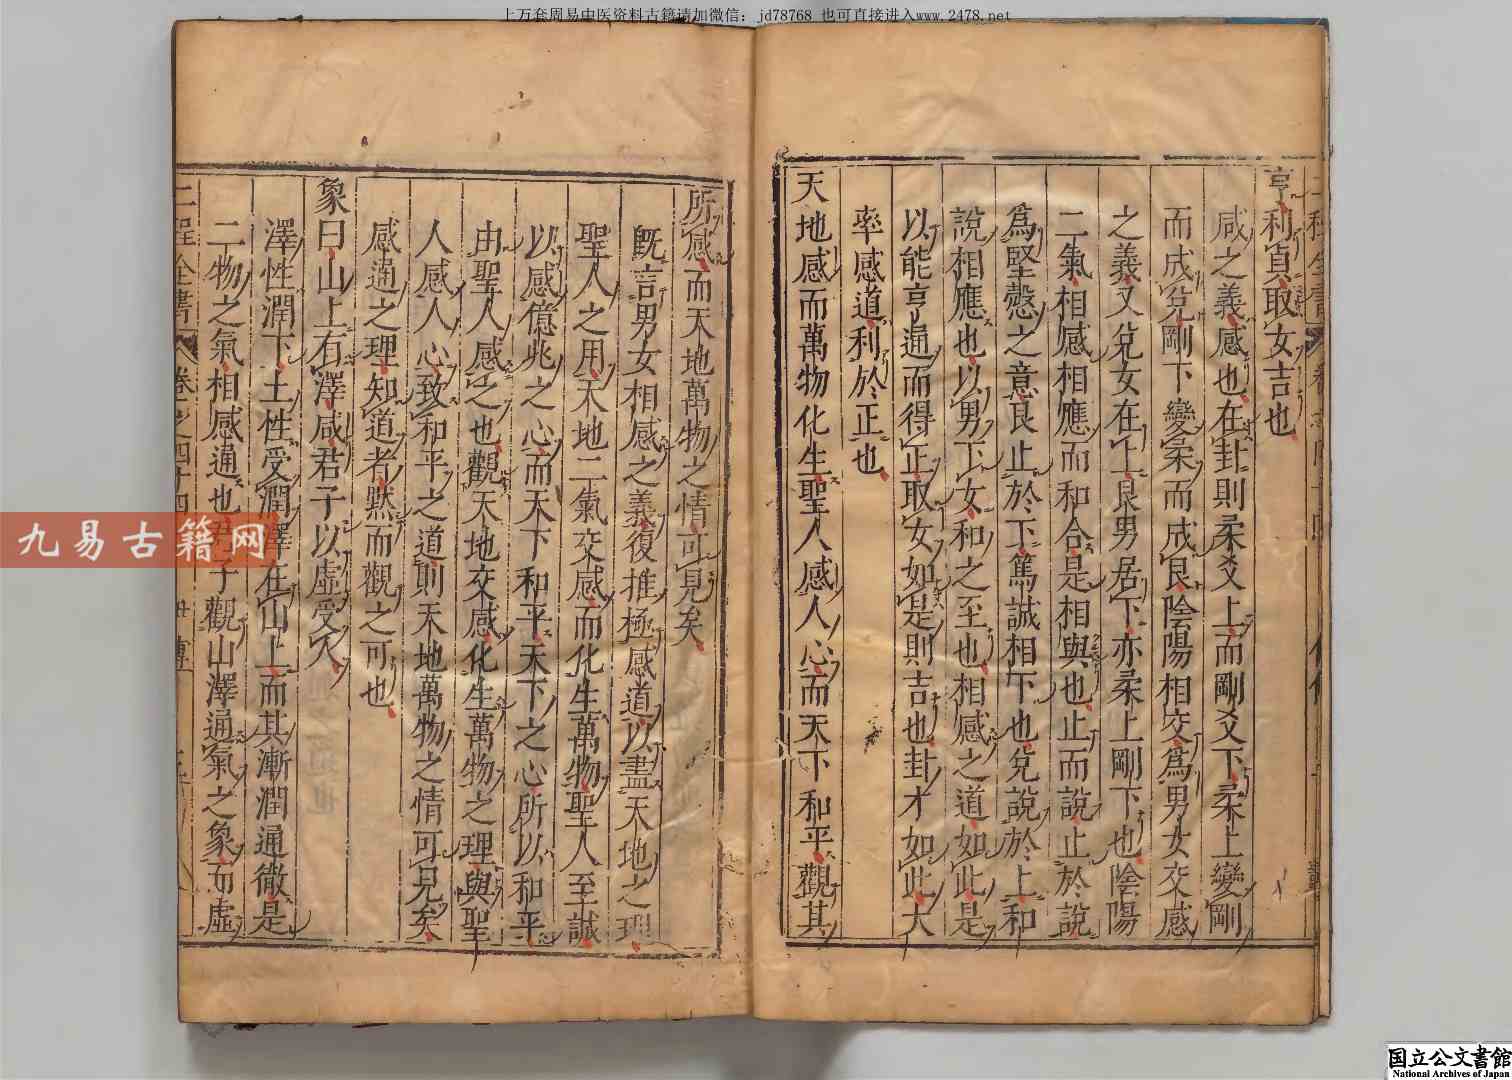 上万套周易中医资料古籍请加微信: jd78768 也可直接进入www.2478.net
亨利貞取女吉也
咸之義感也在卦則柔爻上而剛爻下柔上變剛
而成兌剛下變柔而成艮陰陽相交爲男女交感
之義又兌女在上艮男居下亦柔上剛下也陰陽
二氣相感相應而和合是相與也止而說止於說
爲堅慤之意艮止於下篤誠相下也兌說於上和
說相應也以男下女和之至也相感之道如此是
以能亨通而得正取女如是則吉也卦才如此大
率感道利於正也
天地感而萬物化生聖人感人心而天下和平觀其
所感而天地萬物之情可見矣
旣言男女相感之義復推極感道以盡天地之理
聖人之用天地二氣交感而化生萬物聖人至誠
以感億兆之心而天下和平天下之心所以和平
由聖人感之也觀天地交感化生萬物之理與聖
人感人心致和平之道則天地萬物之情可見矣
感通之理知道者默而觀之可也
象曰山上有澤咸君子以虛受人
澤性潤下土性受潤澤在山上而其漸潤通徹是
二物之氣相感通也君子觀山澤通氣之象而虛
二程全書 卷之四十四
九易古籍网
国立公文書館
National Archives of Japan